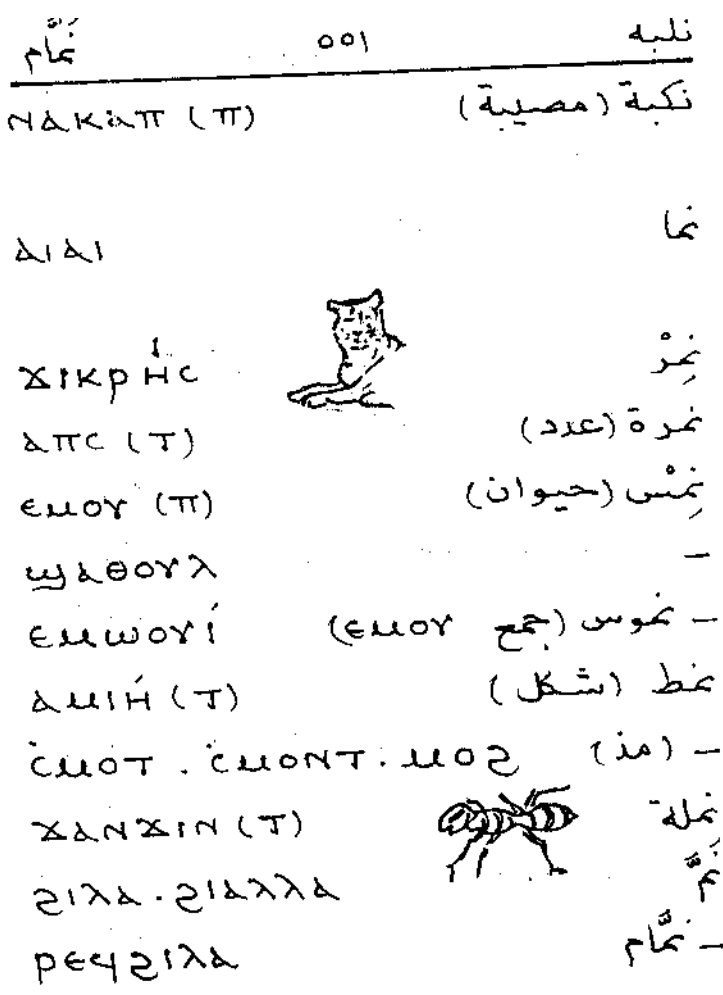 نلبه ٥٥١ نمَّام
نكبة (مصيبة) ⲛⲁⲕⲁⲡ (ⲡ)
نما ⲁⲓⲁⲓ
نِمْر ϫⲓⲕⲣⲏ̀ⲥ
نمرة (عدد) ⲁⲡⲥ (ⲧ)
نِمْس (حيوان) ⲉⲙⲟⲩ (ⲡ)
– ϣⲁⲑⲟⲩⲗ
– نموس (جمع ⲉⲙⲟⲩ) ⲉⲙⲱⲟⲩⲓ̀
نمط (شكل) ⲁⲙⲓⲏ̀ (ⲧ)
– (مذ) ⲥ̀ⲙⲟⲧ . ⲥ̀ⲙⲟⲛⲧ . ⲙⲟϩ
نملة ϫⲁⲛϫⲓⲛ (ⲧ)
نَمَّ ϩⲓⲗⲁ . ϩⲓⲁⲗⲗⲁ
– نمَّام ⲣⲉϥϩⲓⲗⲁ